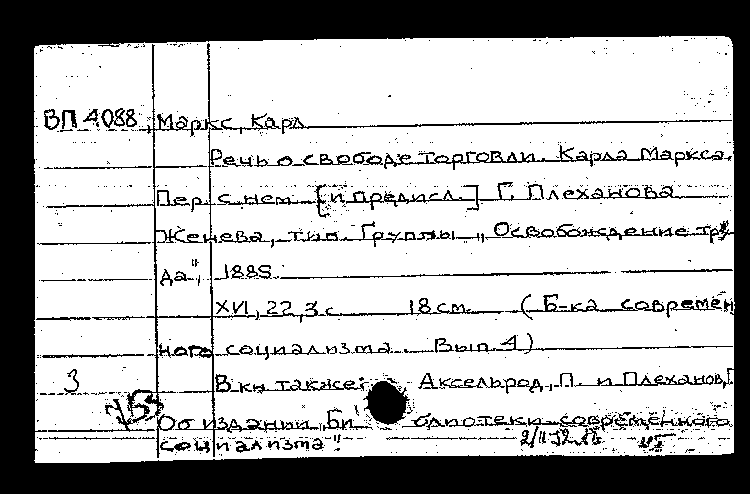 ВП 4088, Маркс, Карл
Речь о свободе торговли. Карла Маркса.
Пер. с нем. [и предисл.] Г. Плеханова
Женева, тип. Группы „Освобождение тру
да", 1885.
XVI, 22, 3 с. 18 см. (Б-ка современ
ного социализма. Вып. 4)
3 В кн. также: Аксельрод, П. и Плеханов, Г.
Об издании „Библиотеки современного
социализма".